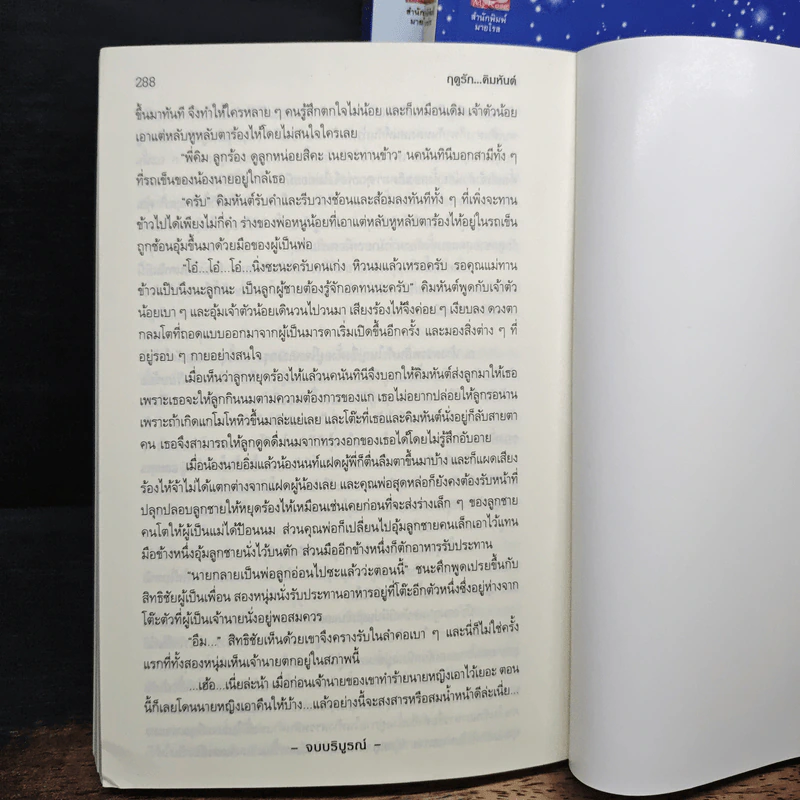 สำนักพิมพ์
มายโรส
สำนักพิมพ์
มายโรส
288
ฤดูรัก...คิมหันต์
ขึ้นมาทันที จึงทำให้ใครหลาย ๆ คนรู้สึกตกใจไม่น้อย และก็เหมือนเดิม เจ้าตัวน้อย
เอาแต่หลับหูหลับตาร้องไห้โดยไม่สนใจใครเลย
“พี่คิม ลูกร้อง ดูลูกหน่อยสิคะ เนยจะทานข้าว” นคนันทินีบอกสามีทั้ง ๆ
ที่รถเข็นของน้องนายอยู่ใกล้เธอ
“ครับ” คิมหันต์รับคำและรีบวางช้อนและส้อมลงทันทีทั้ง ๆ ที่เพิ่งจะทาน
ข้าวไปได้เพียงไม่กี่คำ ร่างของพ่อหนูน้อยที่เอาแต่หลับหูหลับตาร้องไห้อยู่ในรถเข็น
ถูกช้อนอุ้มขึ้นมาด้วยมือของผู้เป็นพ่อ
“โอ๋...โอ๋...โอ๋...นิ่งซะนะครับคนเก่ง หิวนมแล้วเหรอครับ รอคุณแม่ทาน
ข้าวแป๊บนึงนะลูกนะ เป็นลูกผู้ชายต้องรู้จักอดทนนะครับ” คิมหันต์พูดกับเจ้าตัว
น้อยเบา ๆ และอุ้มเจ้าตัวน้อยเดินวนไปวนมา เสียงร้องไห้จึงค่อย ๆ เงียบลง ดวงตา
กลมโตที่ถอดแบบออกมาจากผู้เป็นมารดาเริ่มเปิดขึ้นอีกครั้ง และมองสิ่งต่าง ๆ ที่
อยู่รอบ ๆ กายอย่างสนใจ
เมื่อเห็นว่าลูกหยุดร้องไห้แล้วนคนันทินีจึงบอกให้คิมหันต์ส่งลูกมาให้เธอ
เพราะเธอจะให้ลูกกินนมตามความต้องการของแก เธอไม่อยากปล่อยให้ลูกรอนาน
เพราะถ้าเกิดแกโมโหหิวขึ้นมาล่ะแย่เลย และโต๊ะที่เธอและคิมหันต์นั่งอยู่ก็ลับสายตา
คน เธอจึงสามารถให้ลูกดูดดื่มนมจากทรวงอกของเธอได้โดยไม่รู้สึกอับอาย
เมื่อน้องนายอิ่มแล้วน้องนนท์แฝดผู้พี่ก็ตื่นลืมตาขึ้นมาบ้าง และก็แผดเสียง
ร้องไห้จ้าไม่ได้แตกต่างจากแฝดผู้น้องเลย และคุณพ่อสุดหล่อก็ยังคงต้องรับหน้าที่
ปลุกปลอบลูกชายให้หยุดร้องไห้เหมือนเช่นเคยก่อนที่จะส่งร่างเล็ก ๆ ของลูกชาย
คนโตให้ผู้เป็นแม่ได้ป้อนนม ส่วนคุณพ่อก็เปลี่ยนไปอุ้มลูกชายคนเล็กเอาไว้แทน
มือข้างหนึ่งอุ้มลูกชายนั่งไว้บนตัก ส่วนมืออีกข้างหนึ่งก็ตักอาหารรับประทาน
“นายกลายเป็นพ่อลูกอ่อนไปซะแล้วว่ะตอนนี้” ชนะศึกพูดเปรยขึ้นกับ
สิทธิชัยผู้เป็นเพื่อน สองหนุ่มนั่งรับประทานอาหารอยู่ที่โต๊ะอีกตัวหนึ่งซึ่งอยู่ห่างจาก
โต๊ะตัวที่ผู้เป็นเจ้านายนั่งอยู่พอสมควร
“อืม...” สิทธิชัยเห็นด้วยเขาจึงครางรับในลำคอเบา ๆ และนี่ก็ไม่ใช่ครั้ง
แรกที่ทั้งสองหนุ่มเห็นเจ้านายตกอยู่ในสภาพนี้
...เฮ้อ...เนี่ยล่ะน้า เมื่อก่อนเจ้านายของเขาทำร้ายนายหญิงเอาไว้เยอะ ตอน
นี้ก็เลยโดนนายหญิงเอาคืนให้บ้าง...แล้วอย่างนี้จะสงสารหรือสมน้ำหน้าดีล่ะเนี่ย...
- จบบริบูรณ์ -